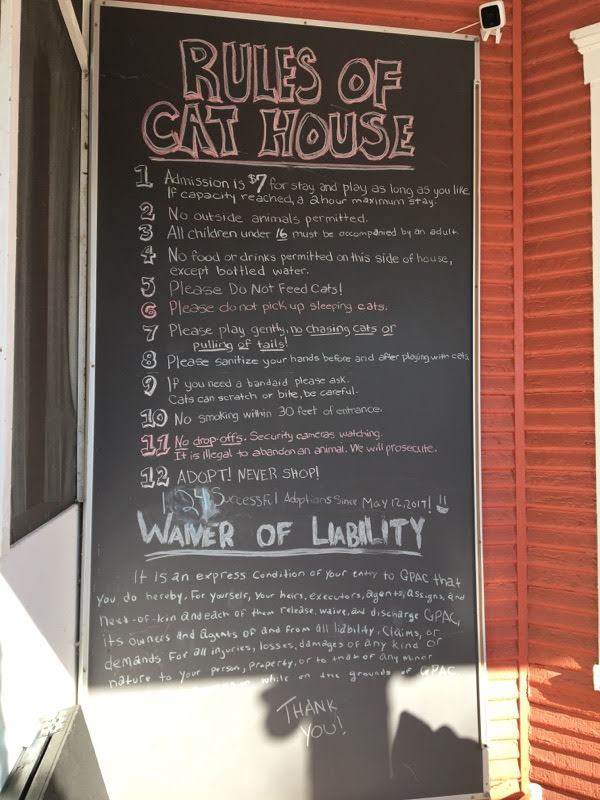 RULES OF
CAT HOUSE
1 Admission is $7 for stay and play as long as you like.
If capacity reached, a 2hour maximum stay.
2 No outside animals permitted.
3 All children under 16 must be accompanied by an adult.
4 No food or drinks permitted on this side of house,
except bottled water.
5 Please Do Not Feed Cats!
6 Please do not pick up sleeping cats.
7 Please play gently, no chasing cats or
pulling of tails!
8 Please sanitize your hands before and after playing with cats.
9 If you need a bandaid please ask.
Cats can scratch or bite, be careful.
10 No smoking within 30 feet of entrance.
11 No drop-offs. Security cameras watching.
It is illegal to abandon an animal. We will prosecute.
12 ADOPT! NEVER SHOP!
Successful Adoptions Since May 12, 2017!
WAIVER OF LIABILITY
It is an express condition of your entry to GPAC that
you do hereby, for yourself, your heirs, executors, agents, assigns, and
next-of-kin and each of them release, waive, and discharge GPAC,
its owners and agents of and from all liability, claims, or
demands for all injuries, losses, damages of any kind or
nature to your person, property, or to that of any minor
while on the grounds of GPAC
THANK
YOU!